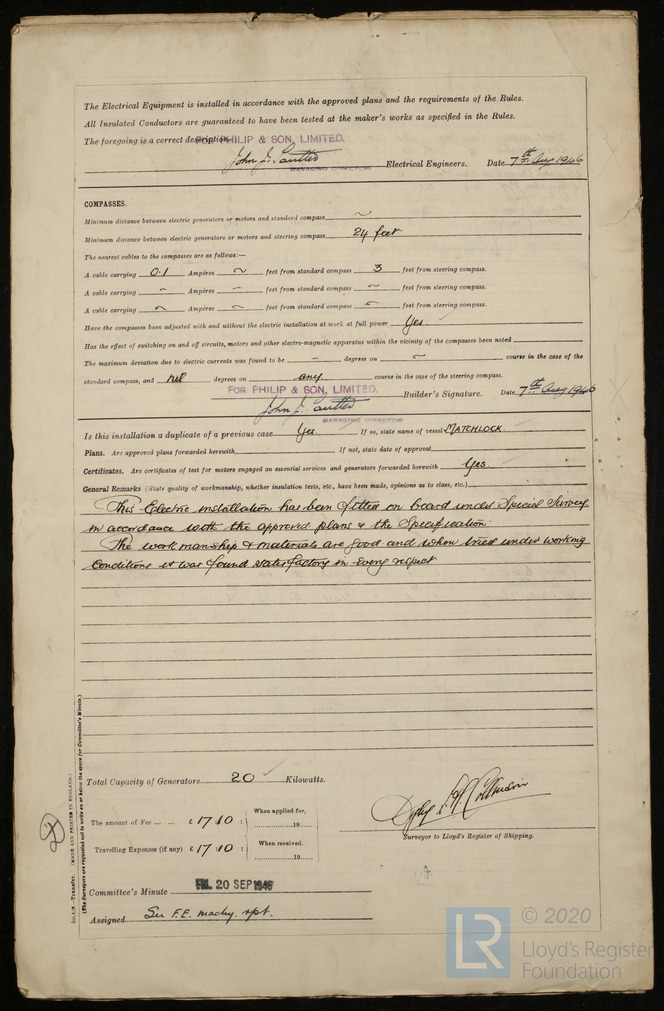 The Electrical Equipment is installed in accordance with the approved plans and the requirements of the Rules.
All Insulated Conductors are guaranteed to have been tested at the maker's works as specified in the Rules.
The foregoing is a correct description. FOR PHILIP & SON, LIMITED.
MANAGING DIRECTOR Electrical Engineers. Date 7th Aug 1946
COMPASSES.
Minimum distance between electric generators or motors and standard compass ~
Minimum distance between electric generators or motors and steering compass 24 feet
The nearest cables to the compasses are as follows:—
A cable carrying 0.1 Ampères ~ feet from standard compass 3 feet from steering compass.
A cable carrying ~ Ampères ~ feet from standard compass ~ feet from steering compass.
A cable carrying ~ Ampères ~ feet from standard compass ~ feet from steering compass.
Have the compasses been adjusted with and without the electric installation at work at full power Yes
Has the effect of switching on and off circuits, motors and other electro-magnetic apparatus within the vicinity of the compasses been noted
The maximum deviation due to electric currents was found to be - degrees on ~ course in the case of the
standard compass, and nil degrees on any course in the case of the steering compass.
FOR PHILIP & SON, LIMITED.
Builder's Signature. Date 7th Aug 1946
MANAGING DIRECTOR
Is this installation a duplicate of a previous case Yes. If so, state name of vessel MATCHLOCK.
Plans. Are approved plans forwarded herewith If not, state date of approval
Certificates. Are certificates of test for motors engaged on essential services and generators forwarded herewith Yes.
General Remarks (State quality of workmanship, whether insulation tests, etc., have been made, opinions as to class, etc.)
This Electric installation has been fitted on board under Special Survey
in accordance with the approved plans & the Specification
The workmanship & materials are good and when tried under working
Conditions it was found satisfactory in every respect
Total Capacity of Generators 20 Kilowatts.
The amount of Fee ... ... £17.10 : When applied for, 19
Surveyor to Lloyd's Register of Shipping.
Travelling Expenses (if any) £17.10 : When received. 19
Committee's Minute FRI. 20 SEP 1946
Assigned See F.E. machy. rpt.
Transfer. (MADE AND PRINTED IN ENGLAND.)
(The Surveyors are requested not to write on or below the space for Committee's Minute.)
LR © 2020
Lloyd's Register
Foundation